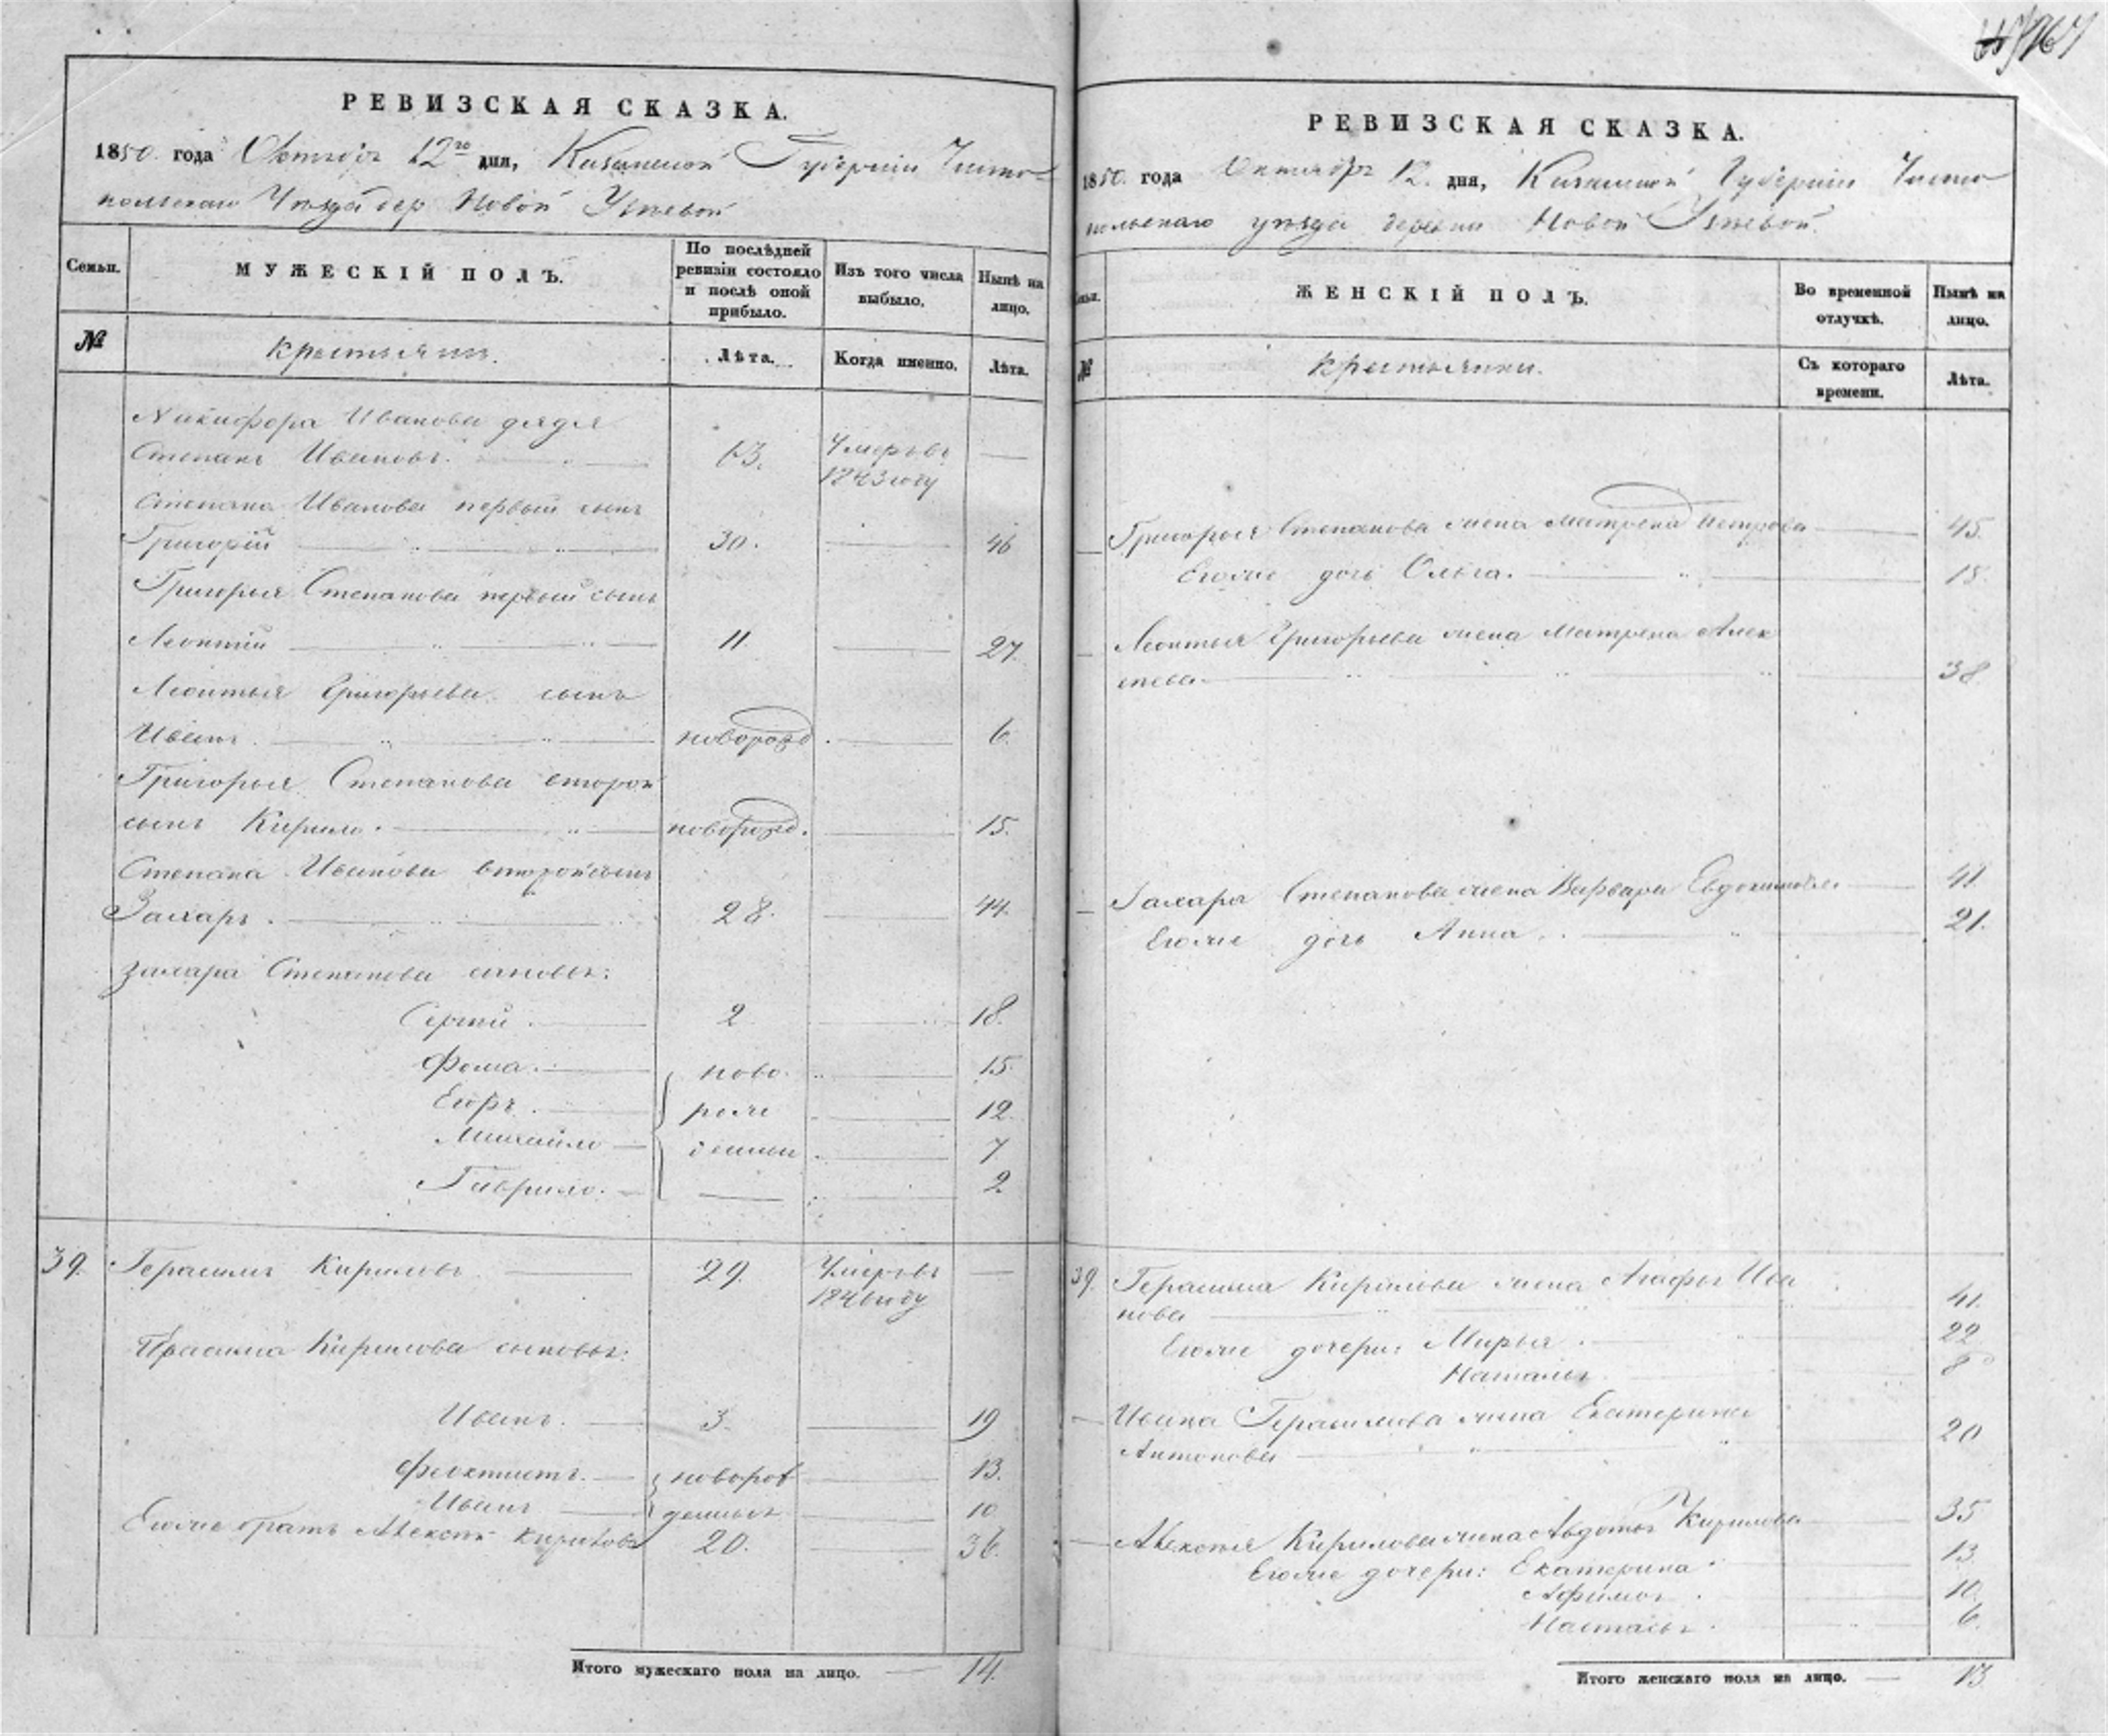 РЕВИЗСКАЯ СКАЗКА.
1850. года Октября 12го дня, Казанской Губернiи Чисто-
польскаго Уѣзда дер Новой
Семьи.
МУЖЕСКIЙ ПОЛЪ.
По послѣдней ревизiи состояло и послѣ оной прибыло.
Изъ того числа выбыло.
Нынѣ на лицо.
№
крестьяни.
Лѣта.
Когда именно.
Лѣта.
Никифора Иванова дядя
Степанъ Ивановъ. 63. Умеръ въ
1843 году
Степана Иванова первый сынъ
Григорiй 30. 46
Григорья Степанова первый сынъ
Леонтiй 11. 27.
Леонтья Григорьева сынъ
Иванъ. новорожд. 6.
Григорья Степанова второй
сынъ Кирило. новорожд. 15.
Степана Иванова второй сынъ
Захаръ. 28. 44.
Захара Степанова сыновья:
Сергѣй. 2 18.
Фома. ново- 15.
Егоръ. рож 12.
Михайло денны. 7
Гаврило. 2.
39. Герасимъ Кириловъ 29. Умеръ въ
1846 году
Герасима Кирилова сыновья:
Иванъ. 3. 19
Феоктистъ. новорож 13.
Иванъ денные 10
Егоже братъ Алексѣй Кириловъ 20. 36.
Итого мужескаго пола на лицо. 14.
РЕВИЗСКАЯ СКАЗКА.
1850. года Октября 12. дня, Казанской Губернiи Чисто
польскаго уѣзда деревни Новой
Семьи.
ЖЕНСКIЙ ПОЛЪ.
Во временной отлучкѣ.
Нынѣ на лицо.
№
крестьянки.
Съ котораго времени.
Лѣта.
Григорья Степанова жена Матрена Петрова 45.
Егоже дочь Ольга. 18.
Леонтья Григорьева жена Матрена Алек
сѣева 38.
Захара Степанова жена Варвара Евдокимова 41
Егоже дочь Анна. 21.
39. Герасима Кирилова жена Агафья Ива
нова 41.
Егоже дочери: Марья. 22
Наталья. 8
Ивана Герасимова жена Екатерина
Антонова 20
Алексѣя Кирилова жена Авдотья Кирилова 35
Егоже дочери: Екатерина 13
Афимья. 10.
Настасья. 6.
Итого женскаго пола на лицо. 13